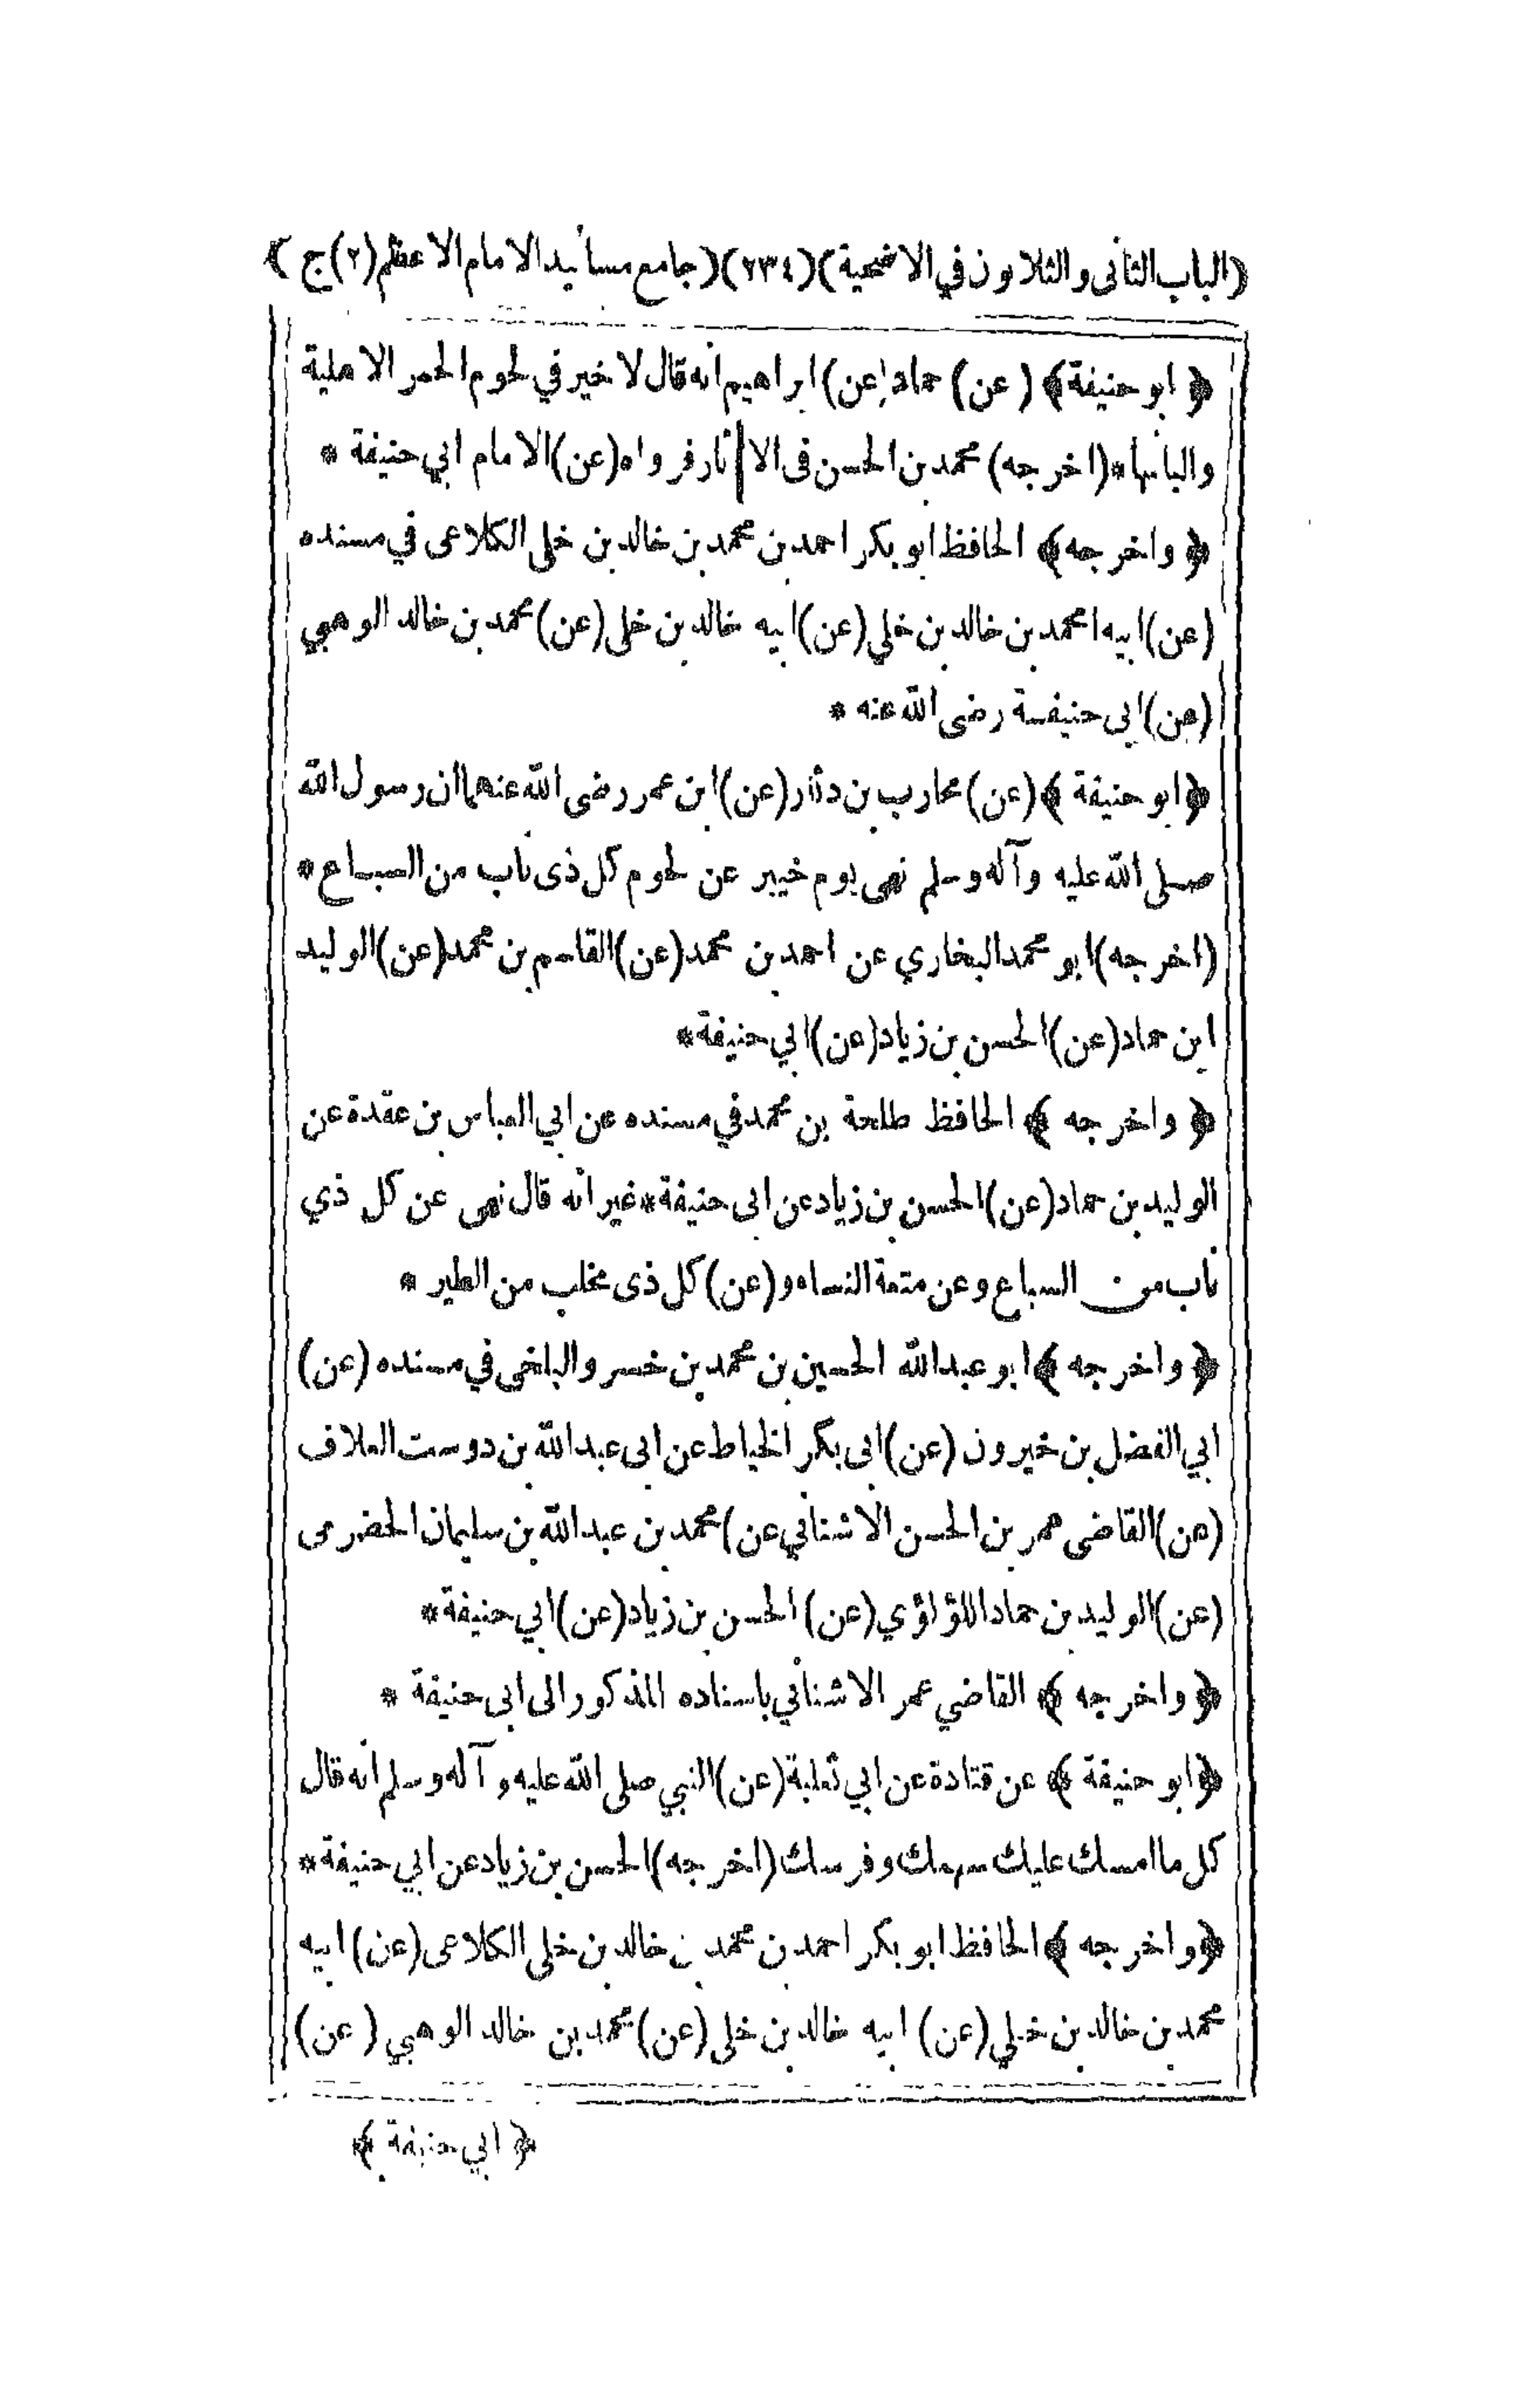 (الباب الثانى والثلاثون في الاضحية) (٢٣٤) (جامع مسانيد الامام الاعظم (٢) ج)
﴿ ابو حنيفة ﴾ (عن) حماد (عن) ابراهيم انه قال لا خير في لحوم الحمر الاهلية
والبانها * (اخرجه) محمد بن الحسن فى الاثار فرواه (عن) الامام ابي حنيفة *
﴿ واخرجه ﴾ الحافظ ابو بكر احمد بن محمد بن خالد بن خلى الكلاعى في مسنده
(عن) ابيه محمد بن خالد بن خلي (عن) ابيه خالد بن خلى (عن) محمد بن خالد الوهبي
(عن) ابى حنيفة رضى الله عنه *
﴿ ابو حنيفة ﴾ (عن) محارب بن دثار (عن) ابن عمر رضى الله عنهما ان رسول الله
صلى الله عليه وآله وسلم نهى يوم خيبر عن لحوم كل ذى ناب من السباع *
(اخرجه) ابو محمد البخاري عن احمد بن محمد (عن) القاسم بن محمد (عن) الوليد
ابن حماد (عن) الحسن بن زياد (عن) ابي حنيفة *
﴿ واخرجه ﴾ الحافظ طلحة بن محمد في مسنده عن ابي العباس بن عقدة عن
الوليد بن حماد (عن) الحسن بن زياد عن ابى حنيفة * غير انه قال نهى عن كل ذي
ناب من السباع وعن متعة النساء و (عن) كل ذى مخلب من الطير *
﴿ واخرجه ﴾ ابو عبد الله الحسين بن محمد بن خسرو البلخى في مسنده (عن)
ابي الفضل بن خيرون (عن) ابى بكر الخياط عن ابى عبد الله بن دوست العلاف
(عن) القاضى عمر بن الحسن الاشناني عن) محمد بن عبد الله بن سليمان الحضرمى
(عن) الوليد بن حماد اللؤلؤي (عن) الحسن بن زياد (عن) ابي حنيفة *
﴿ واخرجه ﴾ القاضي عمر الاشناني باسناده المذكور الى ابى حنيفة *
﴿ ابو حنيفة ﴾ عن قتادة عن ابي ثعلبة (عن) النبي صلى الله عليه وآله وسلم انه قال
كل ما امسك عليك سهمك وفرسك (اخرجه) الحسن بن زياد عن ابي حنيفة *
﴿ واخرجه ﴾ الحافظ ابو بكر احمد بن محمد بن خالد بن خلى الكلاعى (عن) ابيه
محمد بن خالد بن خلي (عن) ابيه خالد بن خلى (عن) محمد بن خالد الوهبي (عن)
﴿ ابي حنيفة ﴾